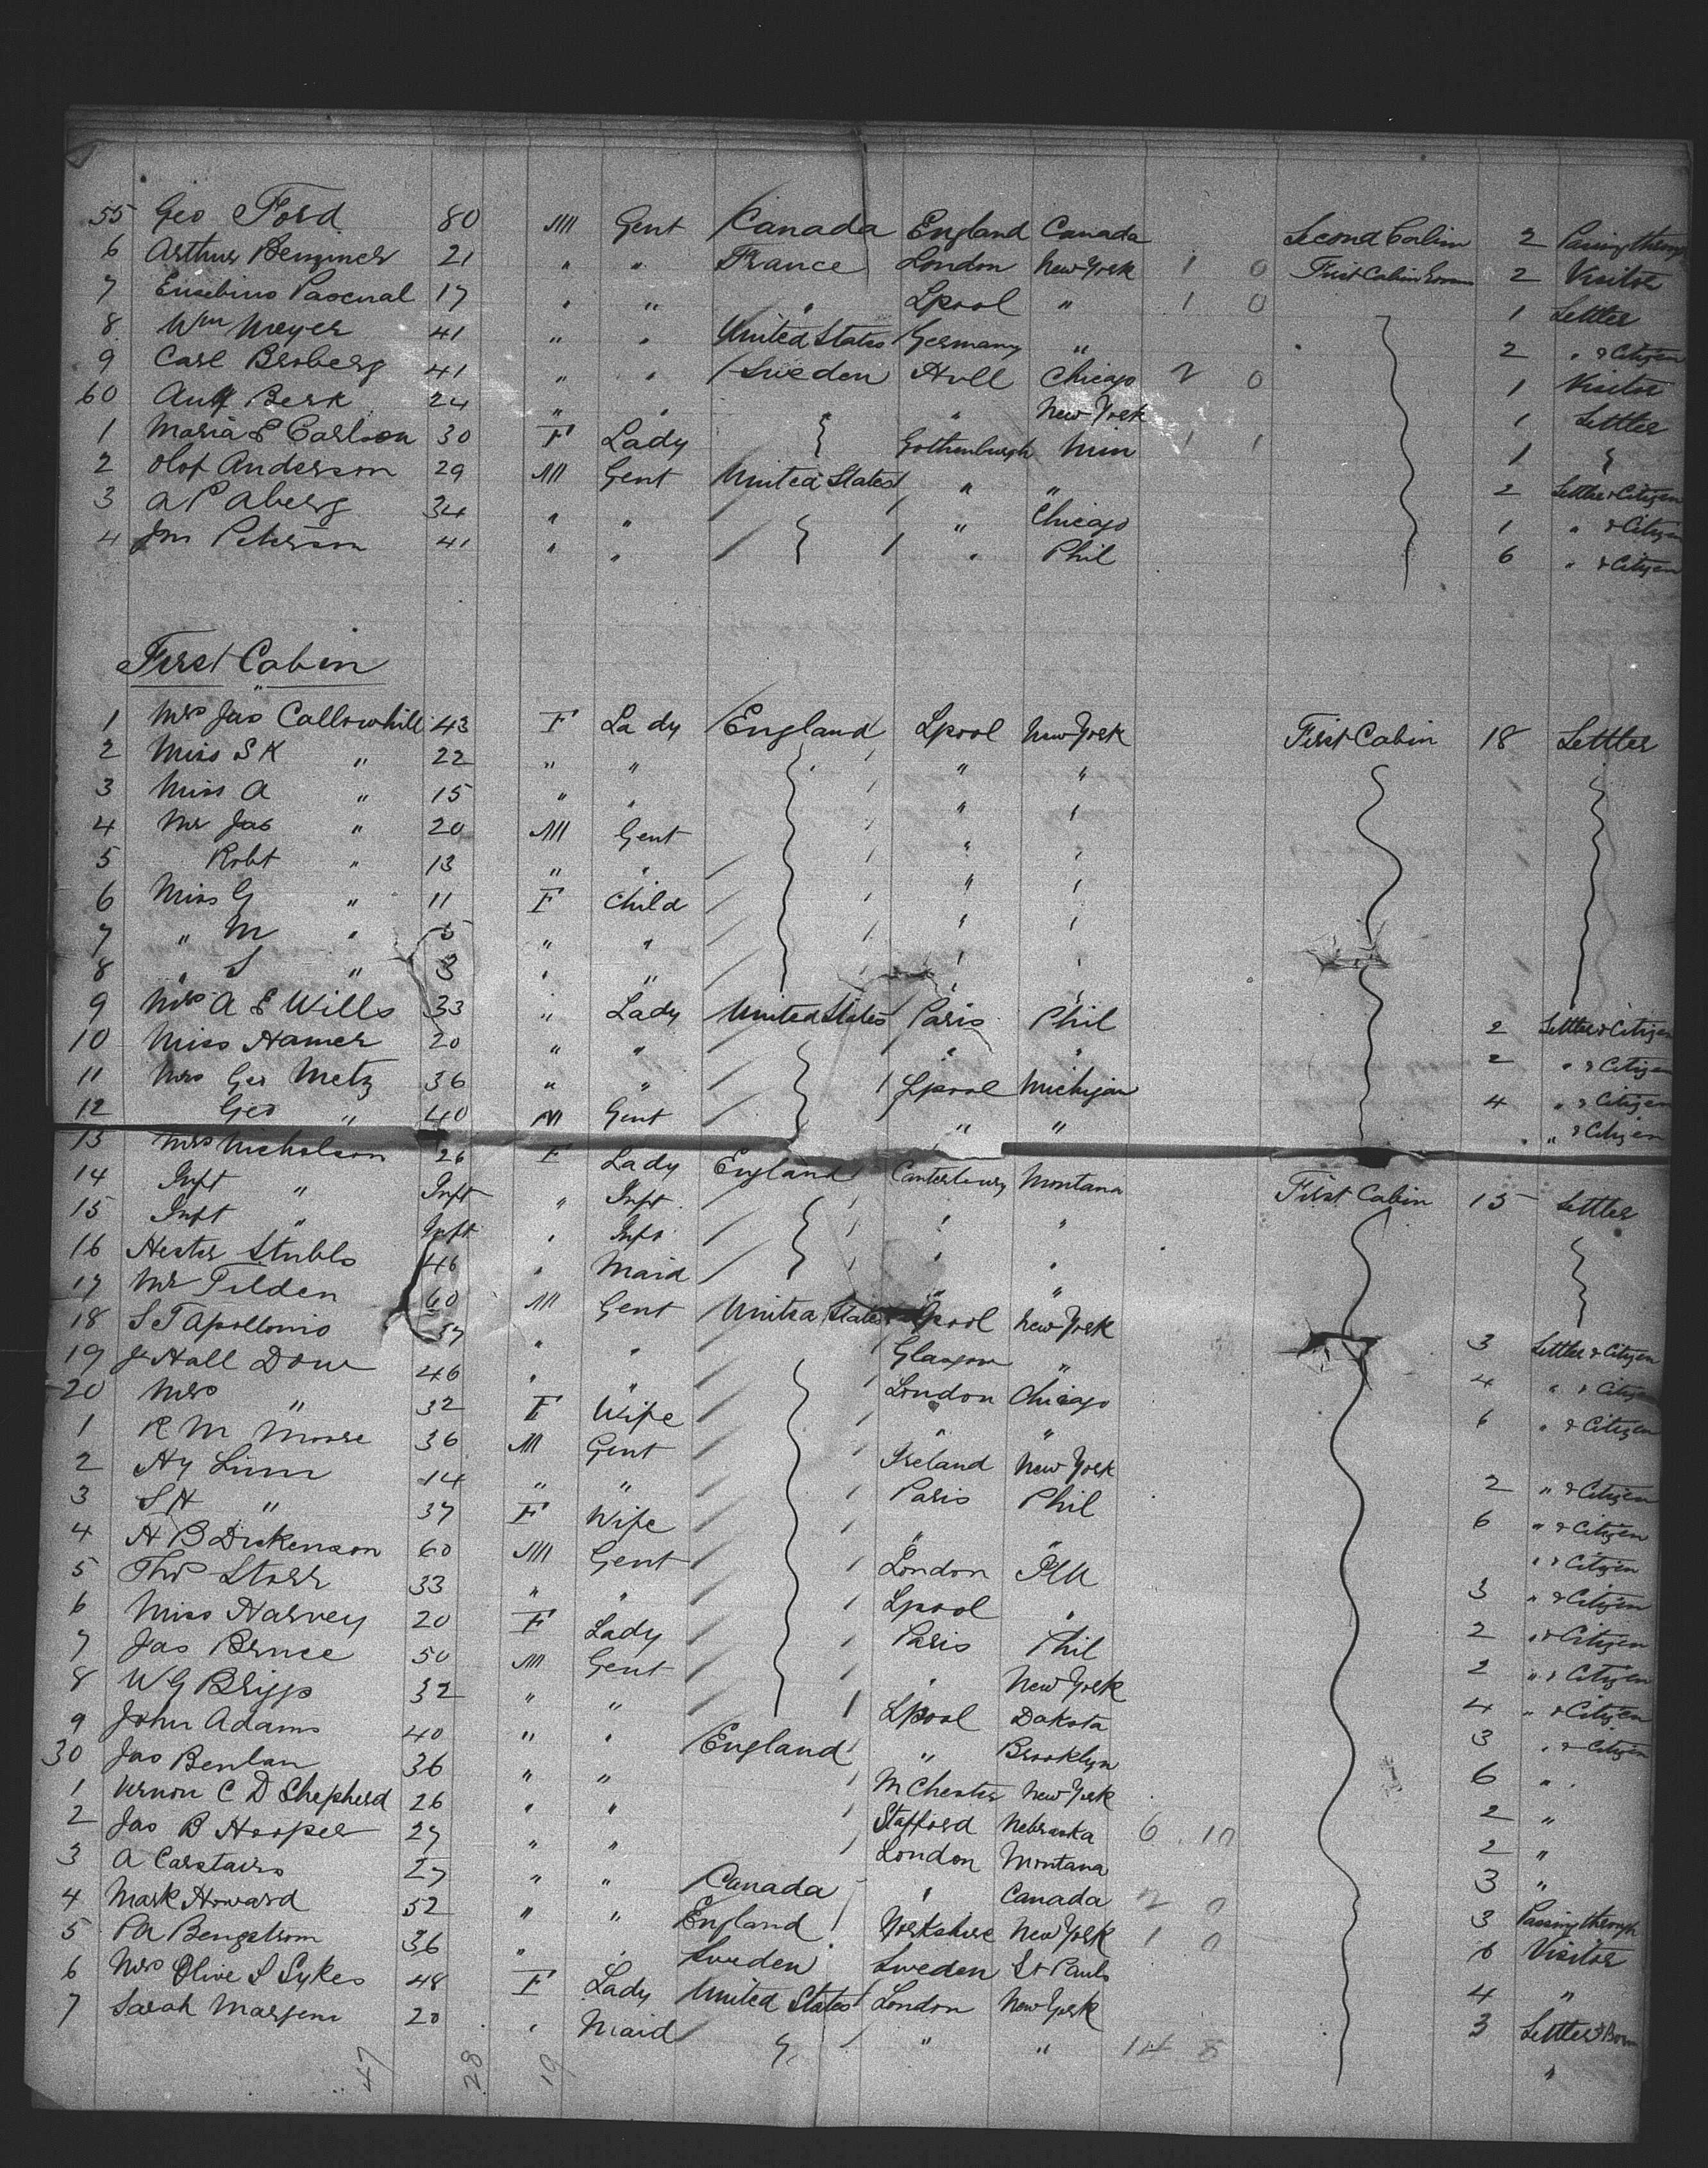 55 Geo Ford 80 M Gent Canada England Canada Second Cabin 2 Passing through
6 Arthur Benziner 21 " " France London New York 1 0 First Cabin 2 Visitor
7 Eusebino Pascual 17 " " " Lpool " 1 0 1 Settler
8 Wm Meyer 41 " " United States Germany " 2 " & Citizen
9 Carl Broberg 41 " " Sweden Hull Chicago 2 0 1 Visitor
60 Berk 24 " " " New York 1 Settler
1 Maria E Carlson 30 F Lady Gothenburgh Min 1 1 1
2 Olof Anderson 29 M Gent United States " " 2 Settler & Citizen
3 A P Aberg 34 " " " Chicago 1 " & Citizen
4 Jno Peterson 41 " " " Phil 6 " & Citizen
First Cabin
1 Mrs Jas Callowhill 43 F Lady England Lpool New York First Cabin 18 Settler
2 Miss S K " 22 " " " "
3 Miss A " 15 " " " "
4 Mr Jas " 20 M Gent " "
5 Robt " 13 " " " "
6 Miss G " 11 F Child " "
7 " M " 5 " " " "
8 " S " 3 " " " "
9 Mrs A E Wills 33 " Lady United States Paris Phil 2 Settler & Citizen
10 Miss Hamer 20 " " " " 2 " & Citizen
11 Mrs Geo Metz 36 " " Lpool Michigan 4 " & Citizen
12 Geo " 40 M Gent " " " & Citizen
13 Mrs Nicholson 26 F Lady England Canterbury Montana First Cabin 15 Settler
14 Inft " Inft " Inft " "
15 Inft " Inft " Inft " "
16 Hester Stubbs 46 " Maid " "
17 Mr Tilden 60 M Gent United States Lpool New York 3 Settler & Citizen
18 S T Apollonio 37 " " Glasgow " 4 " & Citizen
19 J Hall Dow 46 " " London Chicago 6 " & Citizen
20 Mrs " 32 F Wife " "
1 R M Moore 36 M Gent Ireland New York 2 " & Citizen
2 Hy Linn 14 " " Paris Phil 6 " & Citizen
3 S H " 37 F Wife " " " & Citizen
4 H B Dickenson 60 M Gent London 3 " & Citizen
5 Thos Storr 33 " " Lpool " 2 " & Citizen
6 Miss Harvey 20 F Lady Paris Phil 2 " & Citizen
7 Jas Bruce 50 M Gent " New York 4 " & Citizen
8 W G Briggs 32 " " Lpool Dakota 3 " & Citizen
9 John Adams 40 " " England " Brooklyn 6 "
30 Jas Benlan 36 " " MChester New York 2 "
1 Vernon C D Shepherd 26 " " Stafford Nebraska 6 10 2 "
2 Jas B Hooper 27 " " London Montana 3 "
3 A Carstairs 27 " " Canada " Canada 2 0 3 Passing through
4 Mark Howard 52 " " England Yorkshire New York 1 0 6 Visitor
5 Bengstrom 36 " " Sweden Sweden St Pauls 4 "
6 Mrs Olive S Sykes 48 F Lady United States London New York 3 Settler & Born
7 Sarah 20 " Maid " " 14 8 "
47 28 19